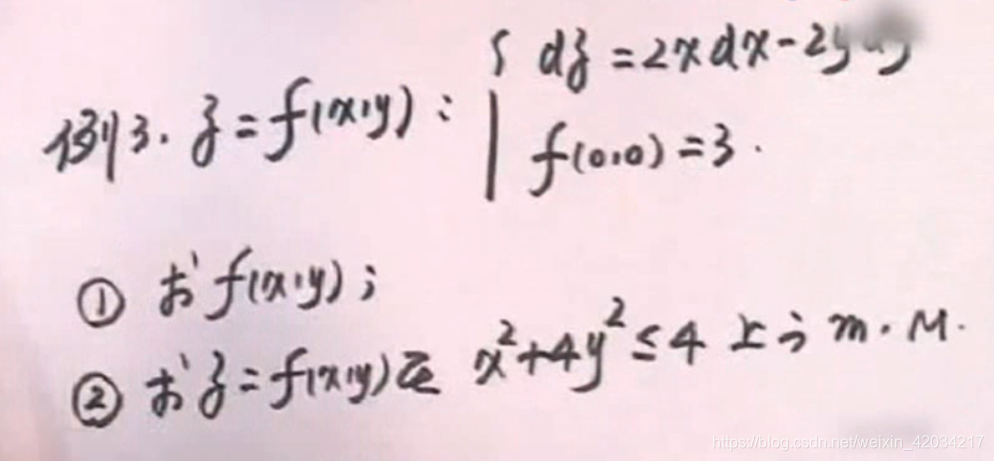 例3. z=f(x,y): { dz=2xdx-2ydy
f(0,0)=3.
① 求f(x,y);
② 求z=f(x,y)在 x²+4y²≤4 上之 m.M.
https://blog.csdn.net/weixin_42034217